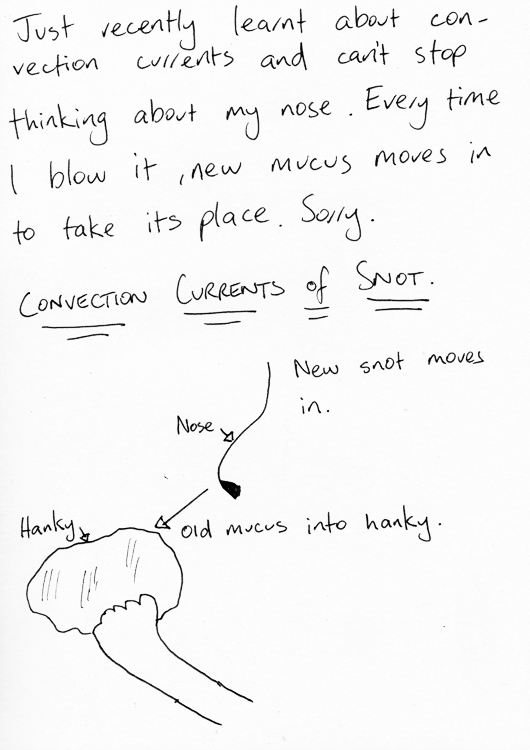 Just recently learnt about con-
vection currents and can't stop
thinking about my nose. Every time
I blow it, new mucus moves in
to take its place. Sorry.
CONVECTION CURRENTS of SNOT.
New snot moves
in.
Nose
Hanky
old mucus into hanky.